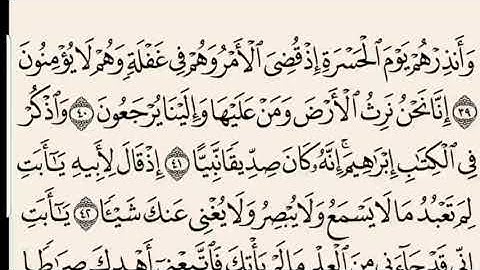 وَأَنذِرْهُمْ يَوْمَ الْحَسْرَةِ إِذْ قُضِيَ الْأَمْرُ وَهُمْ فِي غَفْلَةٍ وَهُمْ لَا يُؤْمِنُونَ
٣٩ إِنَّا نَحْنُ نَرِثُ الْأَرْضَ وَمَنْ عَلَيْهَا وَإِلَيْنَا يُرْجَعُونَ ٤٠ وَاذْكُرْ
فِي الْكِتَابِ إِبْرَاهِيمَ ۚ إِنَّهُ كَانَ صِدِّيقًا نَّبِيًّا ٤١ إِذْ قَالَ لِأَبِيهِ يَا أَبَتِ
لِمَ تَعْبُدُ مَا لَا يَسْمَعُ وَلَا يُبْصِرُ وَلَا يُغْنِي عَنكَ شَيْئًا ٤٢ يَا أَبَتِ
إِنِّي قَدْ جَاءَنِي مِنَ الْعِلْمِ مَا لَمْ يَأْتِكَ فَاتَّبِعْنِي أَهْدِكَ صِرَاطًا